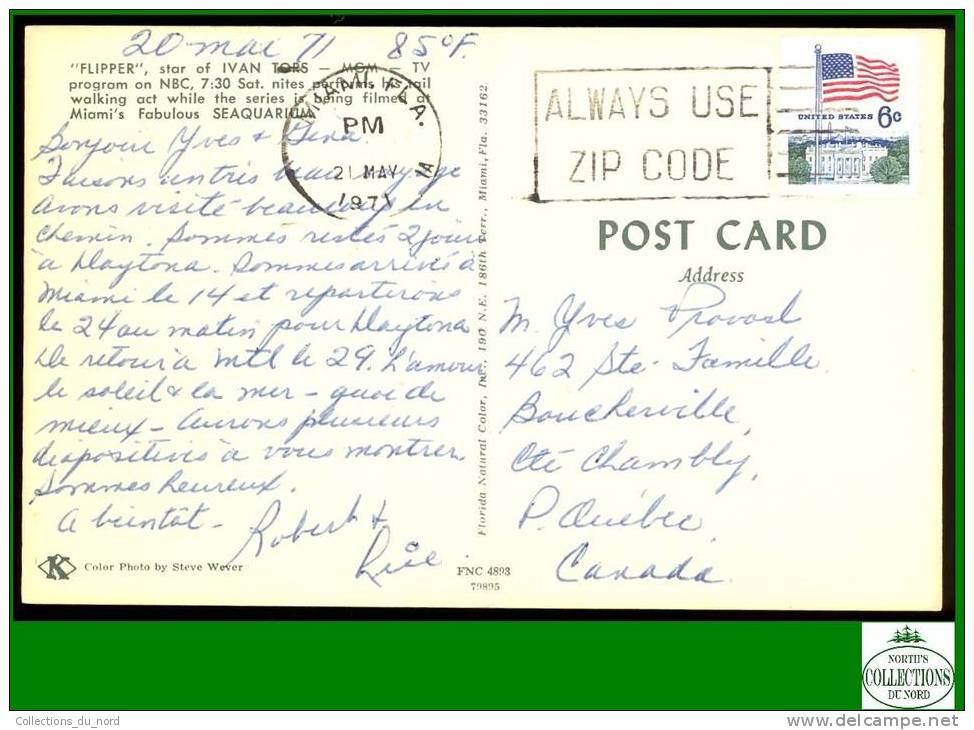 20 mai 71 85°F.
"FLIPPER", star of IVAN TORS — MGM — TV
program on NBC, 7:30 Sat. nites performs his tail
walking act while the series is being filmed at
Miami's Fabulous SEAQUARIUM
MIAMI, FLA.
PM
21 MAY
1971
1A
ALWAYS USE
ZIP CODE
UNITED STATES 6c
Bonjour Yves & Gina.
Faisons un très beau voyage
avons visité beaucoup en
chemin. Sommes restés 2 jours
à Daytona. Sommes arrivés à
Miami le 14 et repartirons
le 24 au matin pour Daytona
De retour à Mtl le 29. L'amour
le soleil & la mer - quoi de
mieux - Aurons plusieurs
diapositives à vous montrer.
Sommes heureux.
A bientôt - Robert &
Color Photo by Steve Wever
K
Florida Natural Color, Inc., 190 N.E. 186th Terr., Miami, Fla. 33162
FNC 4893
79895
POST CARD
Address
M. Yves Provost
462 Ste-Famille
Boucherville,
Cté Chambly,
P. Québec,
Canada.
NORTH'S
COLLECTIONS
DU NORD
Collections_du_nord
www.delcampe.net